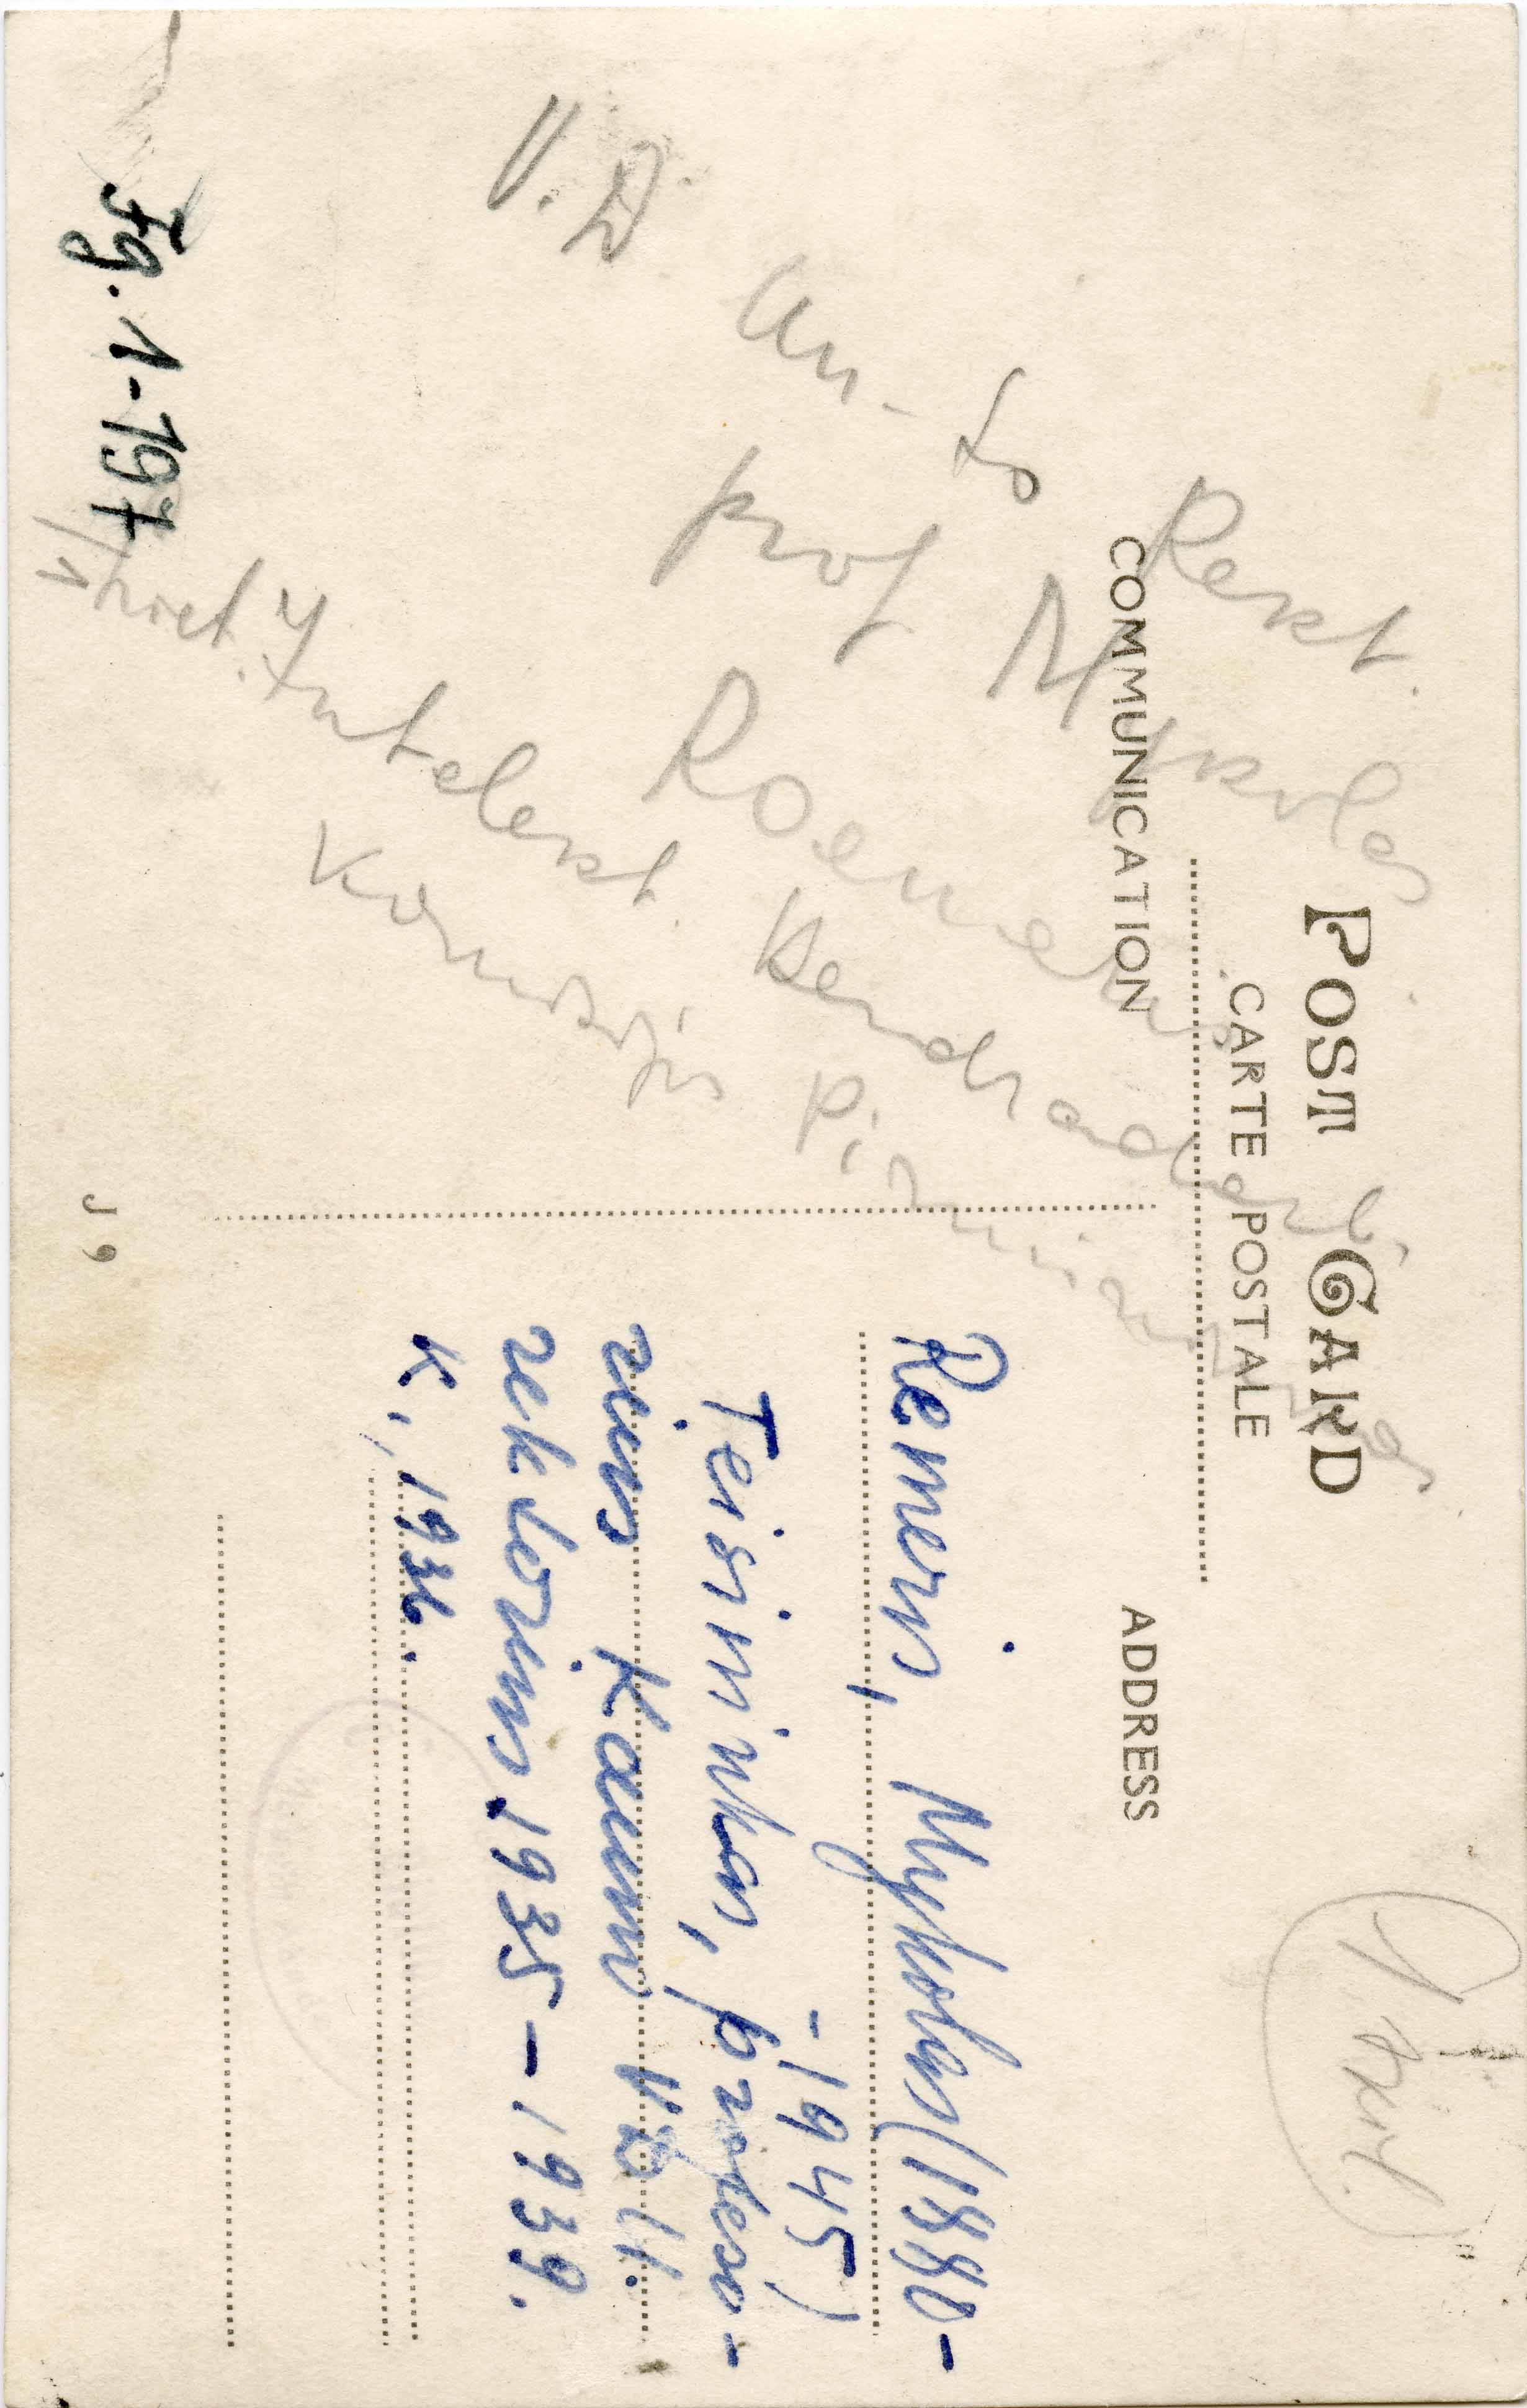 POST CARD
CARTE POSTALE
COMMUNICATION
ADDRESS
V. D. Un-to Rekt.
prof Mykolas
Roemeris
Intelekt. Bendradarb.
Komisijos pirmininkas
Remeris, Mykolas (1880-
-1945)
Teisininkas, profeso-
rius Kauno VDU.
rektorius 1935-1939.
K., 1936.
Fg. 1-197/1
J 9